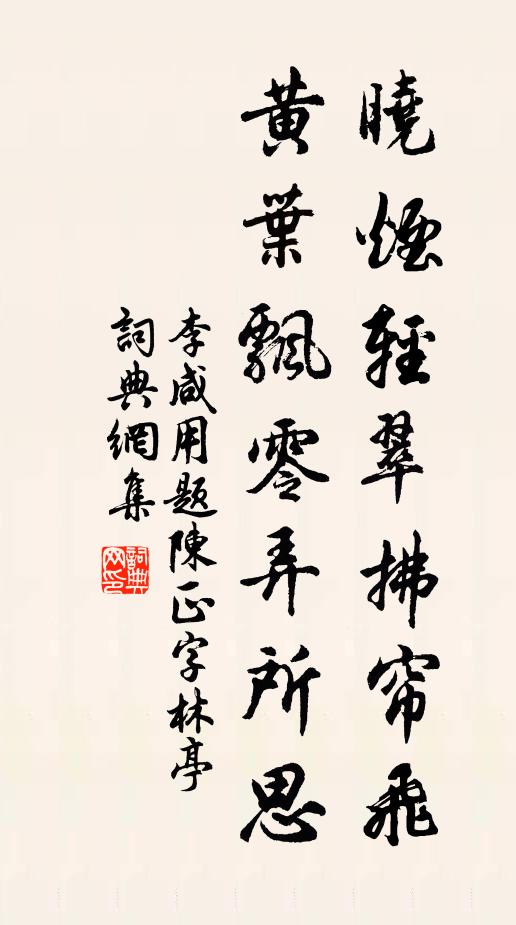 曉煙輕翠拂帘飛
黃葉飄零弄所思
李咸用題陳正字林亭
詞典網集
詞典網印